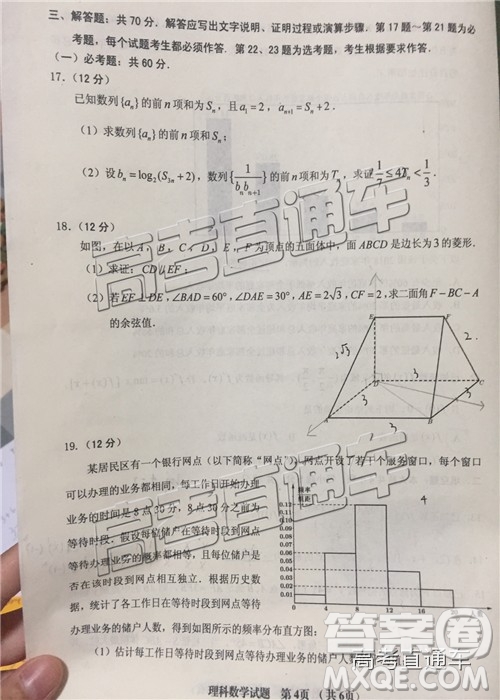 三、解答题：共 70 分．解答应写出文字说明、证明过程或演算步骤．第 17 题～第 21 题为必
考题，每个试题考生都必须作答．第 22、23 题为选考题，考生根据要求作答．
（一）必考题：共 60 分．
17．（12 分）
已知数列{aₙ}的前 n 项和为 Sₙ，且 a₁ = 2，aₙ₊₁ = Sₙ + 2．
（1）求数列{aₙ}的前 n 项和 Sₙ；
（2）设 bₙ = log₂(S₃ₙ + 2)，数列{1/(bₙbₙ₊₁)}的前 n 项和为 Tₙ，求证 1/7 ≤ 4Tₙ < 1/3．
18．（12 分）
如图，在以 A，B，C，D，E，F 为顶点的五面体中，面 ABCD 是边长为 3 的菱形．
（1）求证：CD∥EF；
（2）若 EF⊥DE，∠BAD = 60°，∠DAE = 30°，AE = 2√3，CF = 2，求二面角 F－BC－A
的余弦值．
E F
2√3 2
D C
3
A 3 B
19．（12 分）
某居民区有一个银行网点（以下简称“网点”），网点开设了若干个服务窗口，每个窗口
可以办理的业务都相同，每工作日开始办理
业务的时间是 8 点 30 分，8 点 30 分之前为
等待时段．假设每位储户在等待时段到网点
等待办理业务的概率都相等，且每位储户是
否在该时段到网点相互独立．根据历史数
据，统计了各工作日在等待时段到网点等待
办理业务的储户人数，得到如图所示的频率分布直方图：
频率
组距
4
0.12
0.11
0.10
0.09
0.08
0.07
0.06
0.05
0.04
0.03
0.02
0.01
0 4 8 12 16
（1）估计每工作日等待时段到网点等待办理业务的储户人数
理科数学试题 第 4页 （共 6页）
高考直通车
答案圈